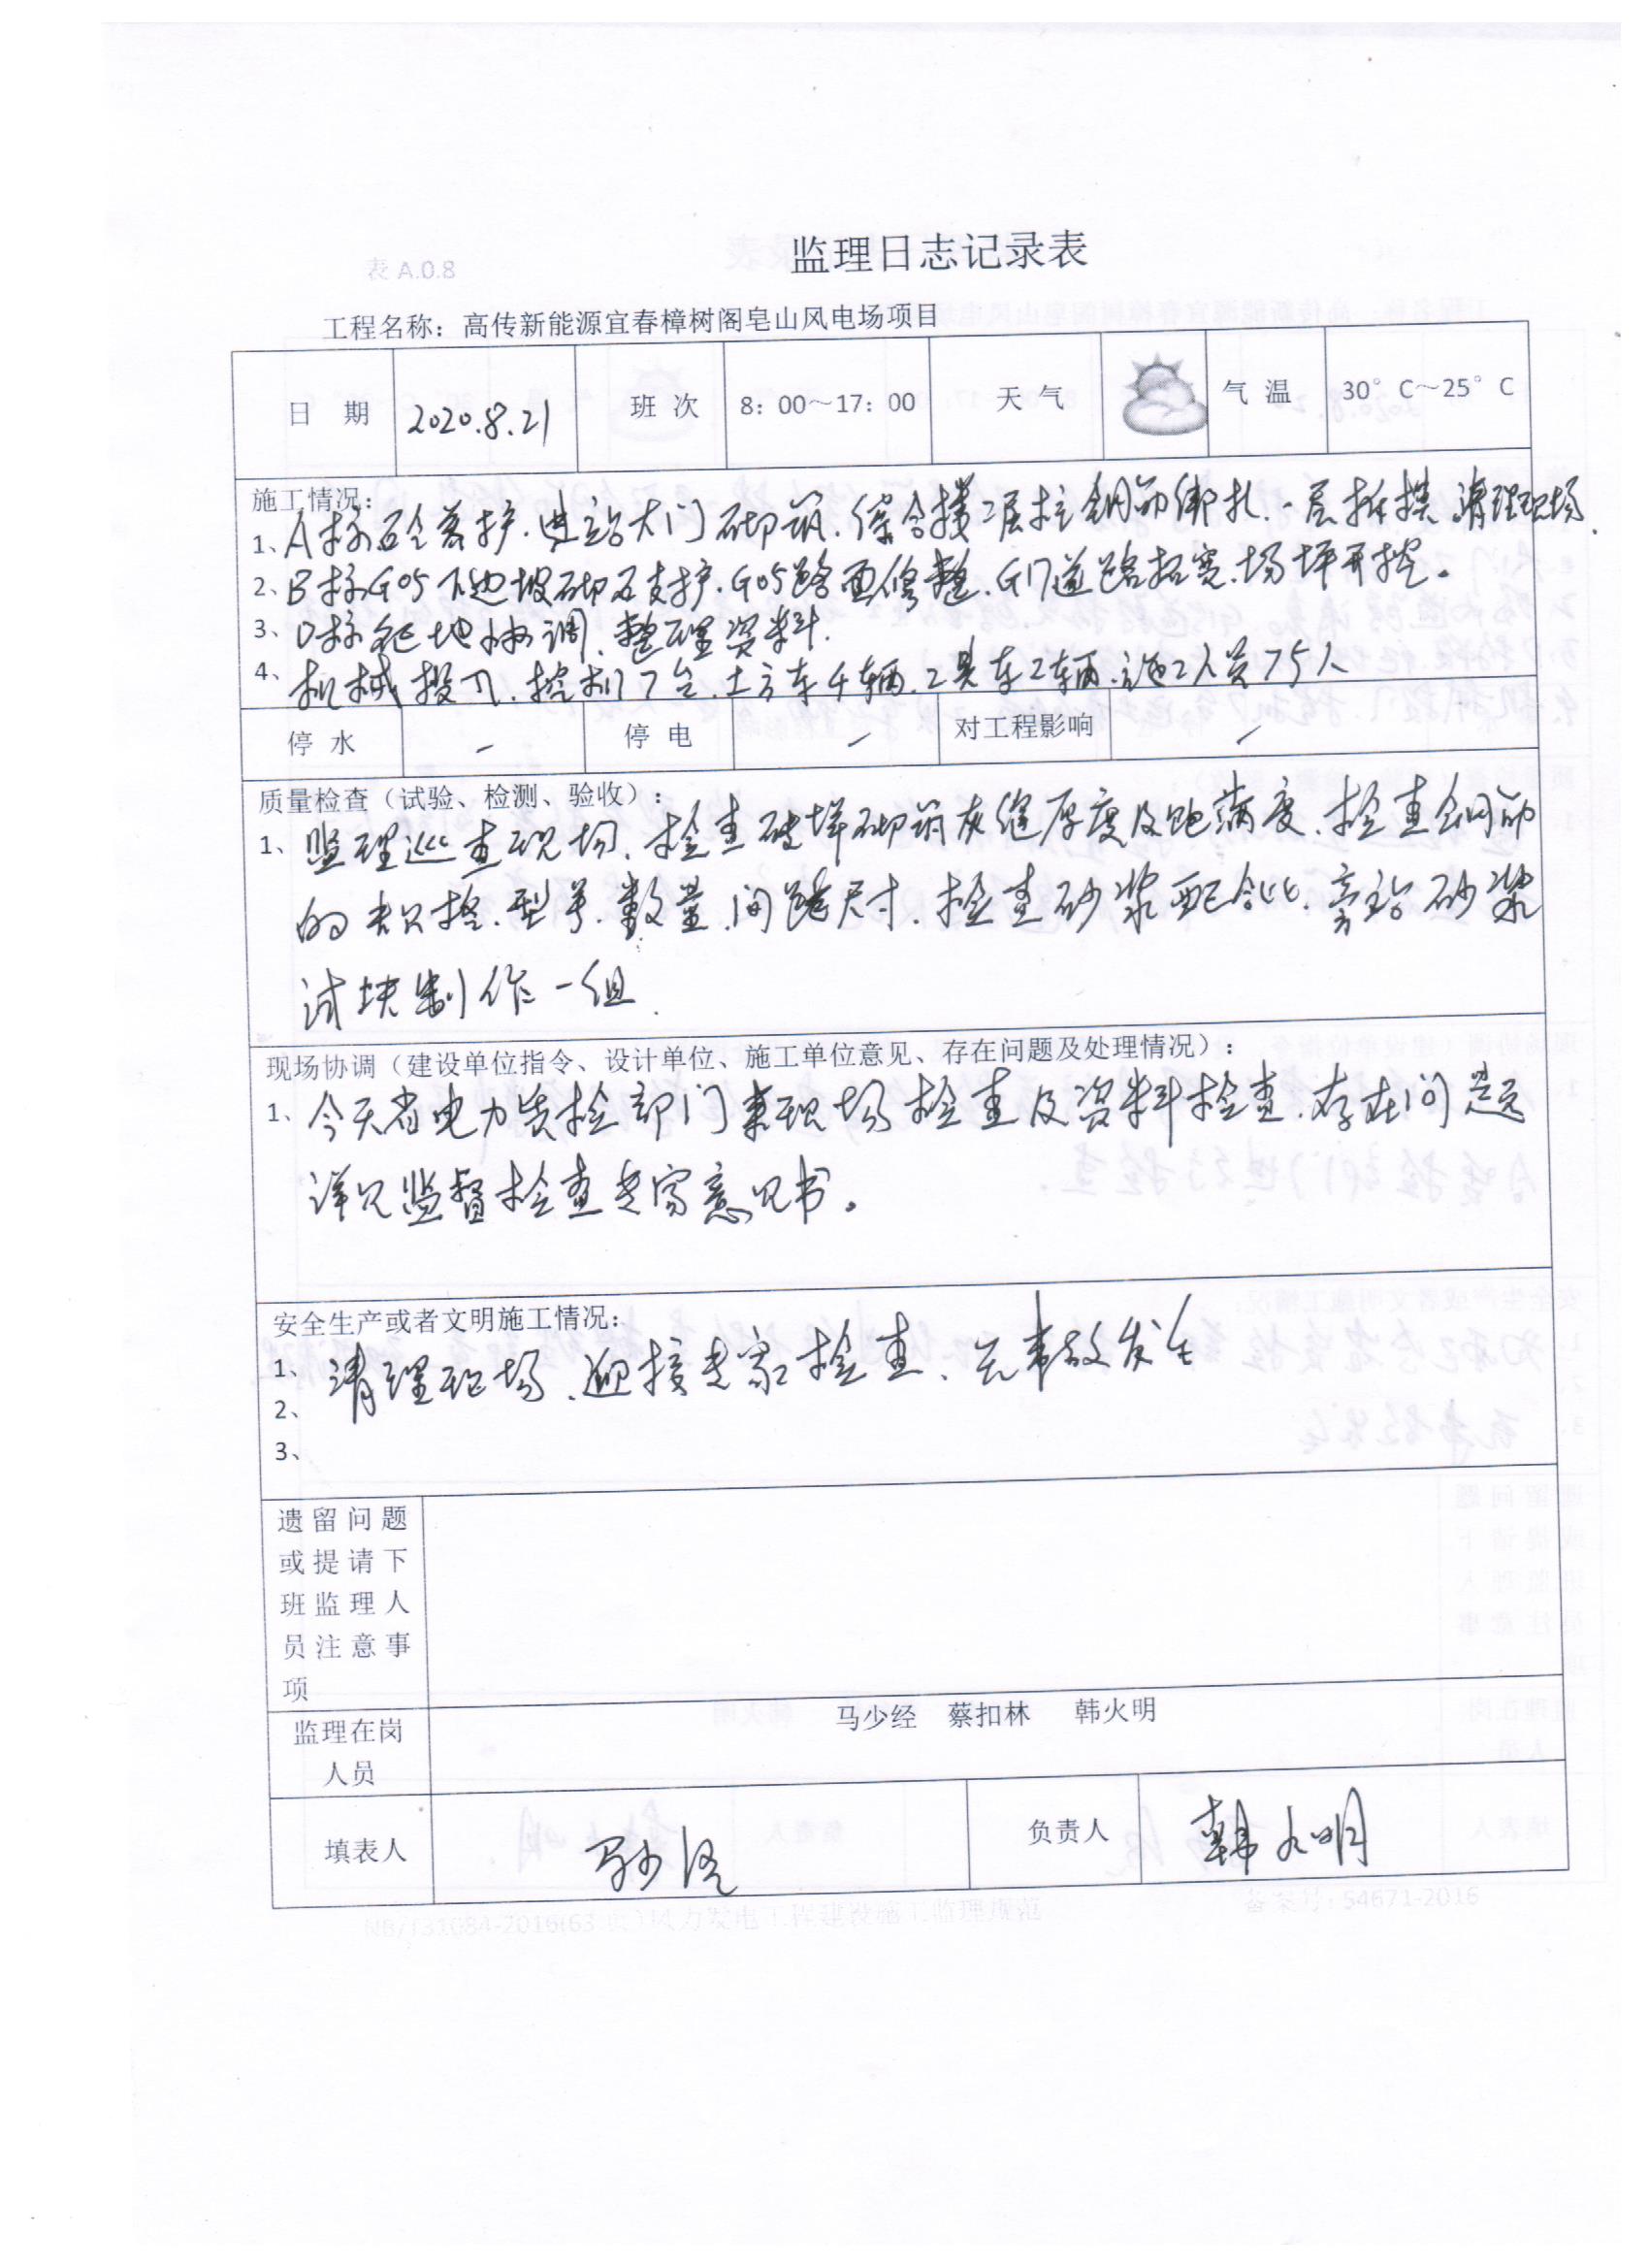 监理日志记录表
表 A.0.8
工程名称：高传新能源宜春樟树阁皂山风电场项目
日 期 2020.8.21 班 次 8：00～17：00 天 气 气 温 30°C～25°C
施工情况：
1、A标砼养护.进站大门砌筑.综合楼二层柱钢筋绑扎.一层拆模.清理现场.
2、B标G05下边坡砌石支护.G05路面修整.G17道路拓宽.场坪开挖。
3、D标征地协调.整理资料.
4、机械投入.挖机7台.土方车4辆.工具车2辆.施工人员75人
停 水 — 停 电 — 对工程影响 —
质量检查（试验、检测、验收）：
1、监理巡查现场.检查砌筑灰缝厚度及饱满度.检查钢筋
的规格.型号.数量.间距尺寸.检查砂浆配合比.旁站砂浆
试块制作一组.
现场协调（建设单位指令、设计单位、施工单位意见、存在问题及处理情况）：
1、今天省电力质检部门来现场检查及资料检查.存在问题
详见监督检查专家意见书。
安全生产或者文明施工情况：
1、清理现场.迎接专家检查.无事故发生
2、
3、
遗留问题
或提请下
班监理人
员注意事
项
监理在岗
人员
马少经 蔡扣林 韩火明
填表人 马少经 负责人 韩火明
NB/T31084-2016(63 页)风力发电工程建设施工监理规范 备案号：54671-2016